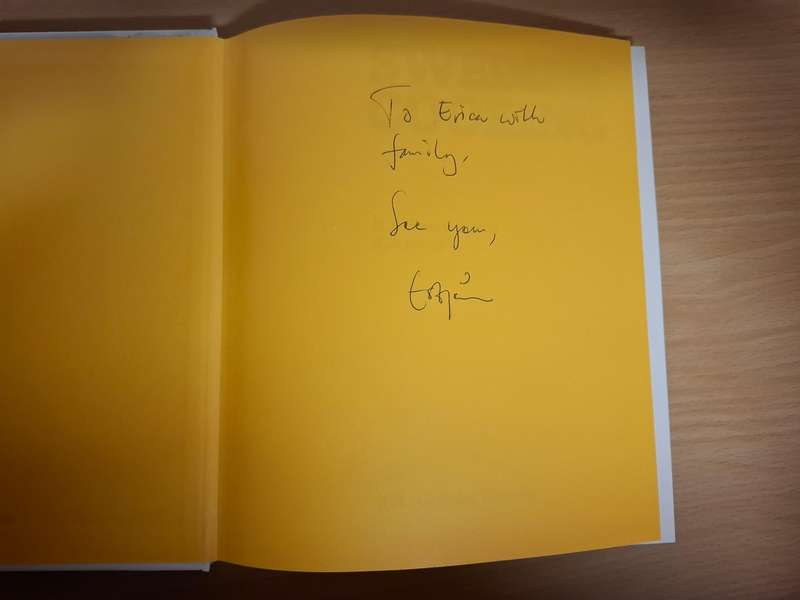 To Erica with
family,
See you,